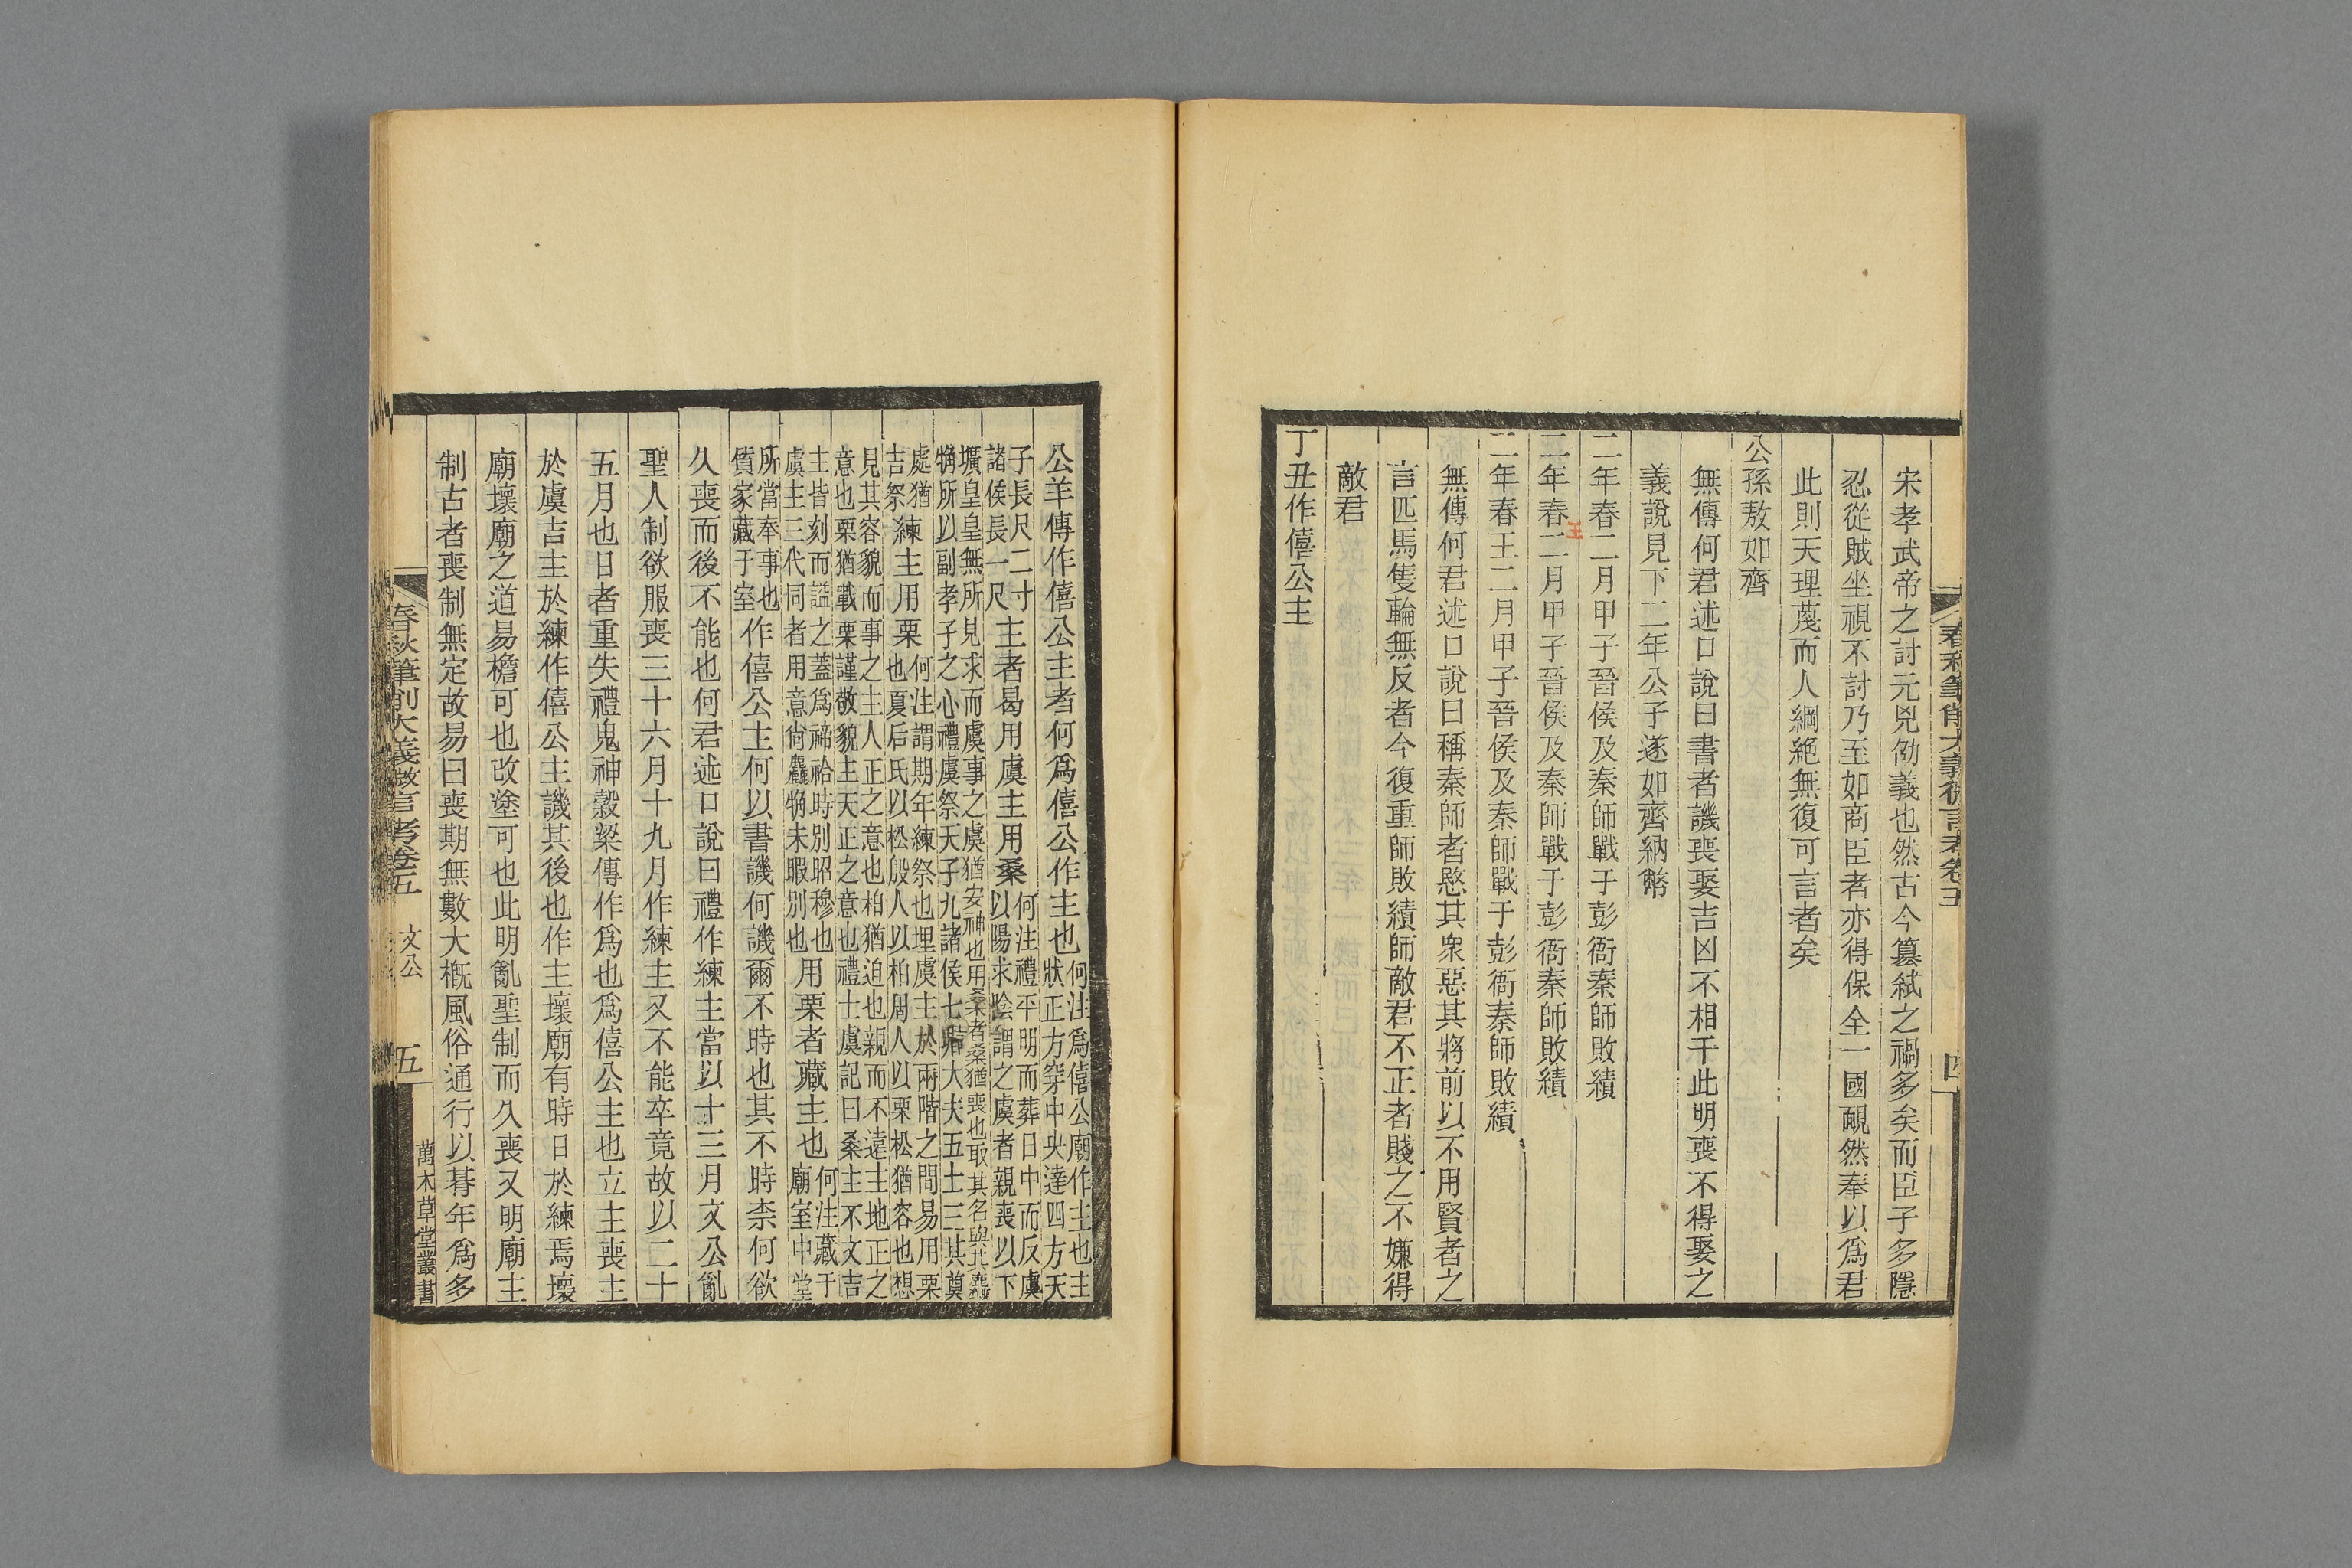 宋孝武帝之討元兇劭義也然古今簒弑之禍多矣而臣子多隱
忍從賊坐視不討乃至如商臣者亦得保全一國靦然奉以爲君
此則天理蔑而人綱絕無復可言者矣
公孫敖如齊
無傳何君述口說曰書者譏喪娶吉凶不相干此明喪不得娶之
義說見下二年公子遂如齊納幣
二年春二月甲子晉侯及秦師戰于彭衙秦師敗績
二年春王二月甲子晉侯及秦師戰于彭衙秦師敗績
二年春王二月甲子晉侯及秦師戰于彭衙秦師敗績
無傳何君述口說曰稱秦師者愍其衆惡其將前以不用賢者之
言匹馬隻輪無反者今復重師敗績師敵君不正者賤之不嫌得
敵君
丁丑作僖公主
春秋筆削大義微言考卷五
四
公羊傳作僖公主者何爲僖公作主也何注爲僖公廟作主也主
狀正方穿中央達四方天
子長尺二寸
諸侯長一尺主者曷用虞主用桑何注禮平明而葬日中而反虞
以陽求陰謂之虞者親喪以下
壙皇皇無所見求而虞事之虞猶安神也用桑者桑猶喪也取其名與其麤
觕所以副孝子之心禮虞祭天子九諸侯七卿大夫五士三其奠
處猶
吉祭練主用栗何注謂期年練祭也埋虞主於兩階之間易用栗
也夏后氏以松殷人以柏周人以栗松猶容也想
見其容貌而事之主人正之意也柏猶迫也親而不遠主地正之
意也栗猶戰栗謹敬貌主天正之意也禮士虞記曰桑主不文吉
主皆刻而謚之蓋爲禘祫時別昭穆也
虞主三代同者用意尙麤觕未暇別也用栗者藏主也何注藏于
廟室中堂
所當奉事也
質家藏于室作僖公主何以書譏何譏爾不時也其不時柰何欲
久喪而後不能也何君述口說曰禮作練主當以十三月文公亂
聖人制欲服喪三十六月十九月作練主又不能卒竟故以二十
五月也日者重失禮鬼神榖梁傳作爲也爲僖公主也立主喪主
於虞吉主於練作僖公主譏其後也作主壞廟有時日於練焉壞
廟壞廟之道易檐可也改塗可也此明亂聖制而久喪又明廟主
制古者喪制無定故易曰喪期無數大槪風俗通行以朞年爲多
春秋筆削大義微言考卷五 文公
五
萬木草堂叢書